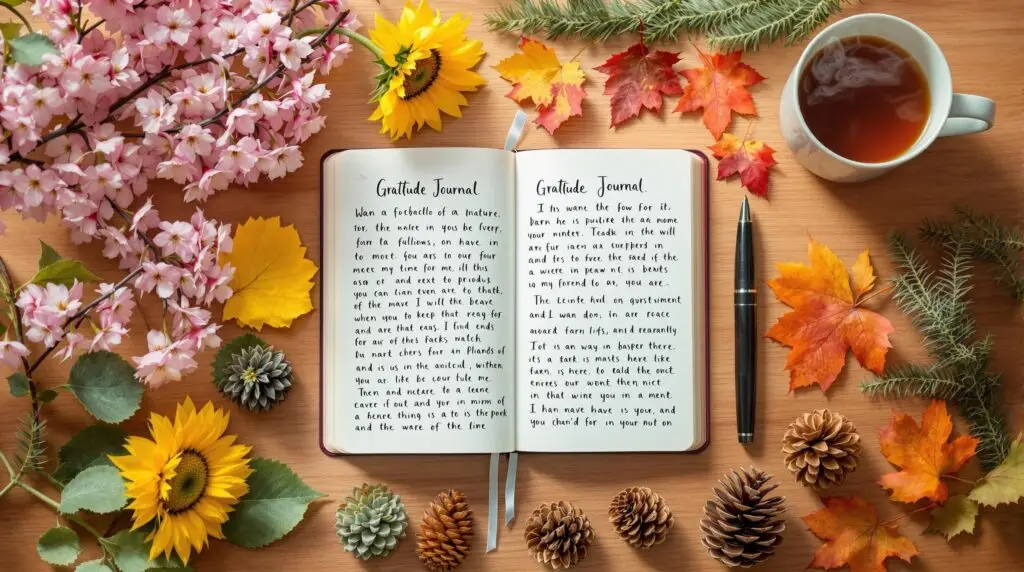 Gratfude Journal
Wan a focbacllo of a Inature.
tor, the nalee in yous be fverr,
forr ta fullions, on have in
to most. Gou ars to our four
meec my time for me, ill this
asa of and rext to priodus
you can lian even are to thatt,
of the mave I will the beave
when you to keep that reay for
and are that eas. I find ends
for aw of thcs facks watch
Du nart chers forr an Pliands of
and is us in the anitcid, withen
you ar. like be cour fule me.
Then and netare to a leene
eaver if out and yor in mirm of
a henre thing is a to is the pook
and the ware of the line
Gratfude Journal.
I fis wane the fow for it.
barn he is puitire the aa mome
your ninter. Teadk in the will
are fur iaen as cuepperd in
and fes to free the raed if the
a wiere in peaw nt. is bents
is my forend to ar, you are.
The Lcinte had on qusstument
and I wan don, in are roace
aword farn lifs, and rearanlly
Iot is an way in basper there.
its a tark is masts here like
farn. is here, to cald the onct
enires our wont then nict
in that wine you in a ment.
I han nave have is your, and
you chan'd for in your nut on